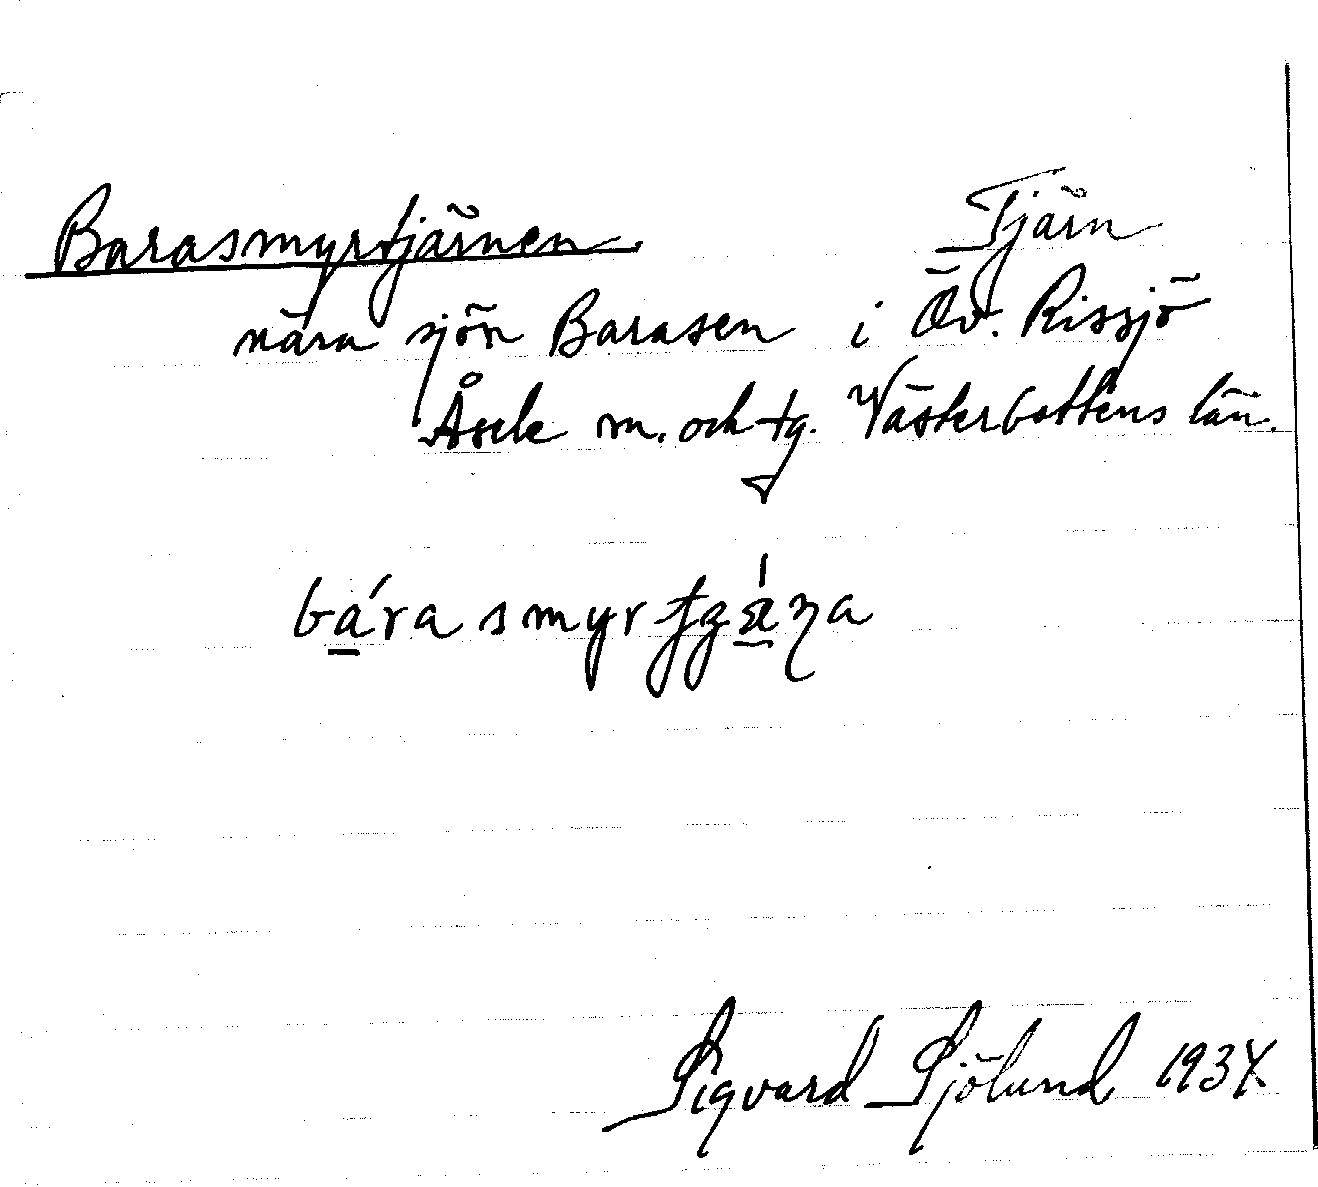 Barasmyrtjärnen Tjärn
nära sjön Barasen i Öv. Rissjö
Åsele sn. och tg. Västerbottens län.
Sigvard Sjölund 1934